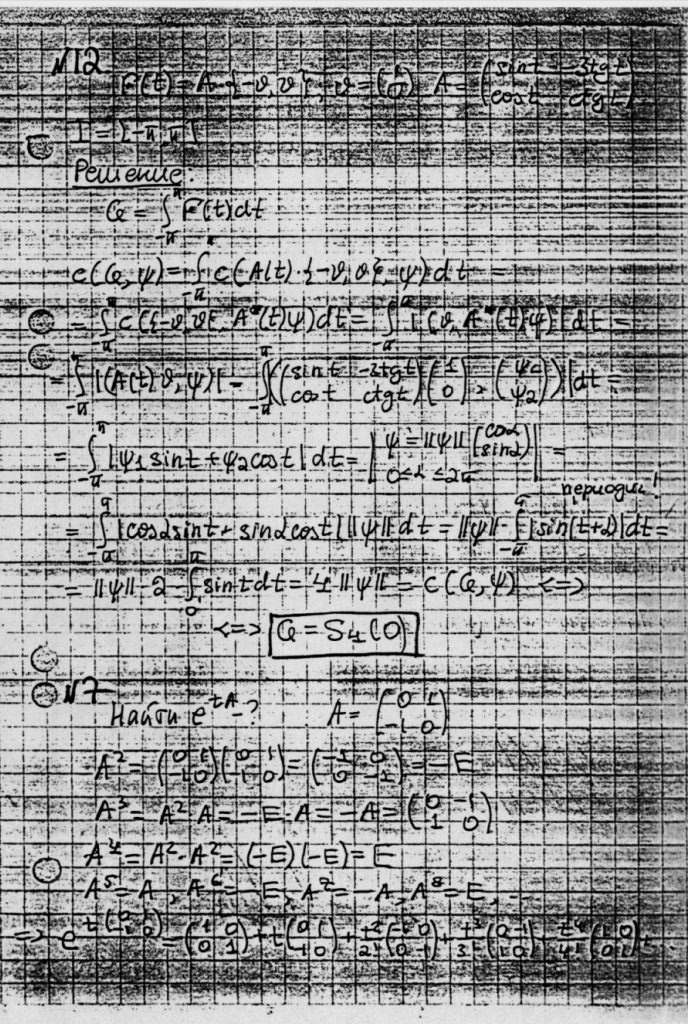 N12
F(t) = A·{-v, v}, v = (1 0) A = (sin t -3tg t cos t ctg t)
I = [-π, π]
Решение:
G = ∫_{-π}^{π} F(t)dt
c(G, ψ) = ∫_{-π}^{π} c(A(t)·{-v, v}, ψ) dt =
= ∫_{-π}^{π} c({-v, v}, A*(t)ψ)dt = ∫_{-π}^{π} |(v, A*(t)ψ)| dt =
= ∫_{-π}^{π} |(A(t)v, ψ)| = ∫_{-π}^{π} |((sin t -3tg t cos t ctg t)(1 0), (ψ1 ψ2))| dt =
= ∫_{-π}^{π} |ψ1 sin t + ψ2 cos t| dt = | ψ = ||ψ|| (cos α sin α) 0 ≤ α ≤ 2π | =
периодич!
= ∫_{-π}^{π} |cos α sin t + sin α cos t| ||ψ|| dt = ||ψ|| · ∫_{-π}^{π} |sin(t+α)| dt =
= ||ψ|| · 2 · ∫_{0}^{π} sin t dt = 4 ||ψ|| = c(G, ψ) <=>
<=> G = S4(0)
N7
Найти e^{tA} - ? A = (0 1 -1 0)
A² = (0 1 -1 0)(0 1 -1 0) = (-1 0 0 -1) = -E
A³ = A²·A = -E·A = -A = (0 -1 1 0)
A⁴ = A²·A² = (-E)(-E) = E
A⁵ = A, A⁶ = -E, A⁷ = -A, A⁸ = E, ...
=> e^{t(0 1 -1 0)} = (1 0 0 1) + t(0 1 -1 0) + t²/2!(-1 0 0 -1) + t³/3!(0 -1 1 0) + t⁴/4!(1 0 0 1) + ...